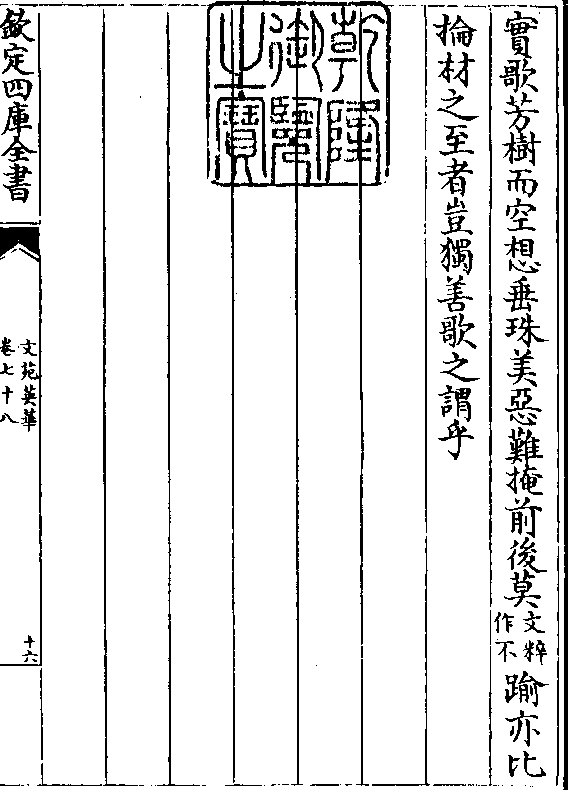 實歌芳樹而空想垂珠美惡難掩前後莫文粹作不踰亦比
掄材之至者豈獨善歌之謂乎
乾隆御覽之寶
欽定四庫全書
文苑英華
卷七十八
十六